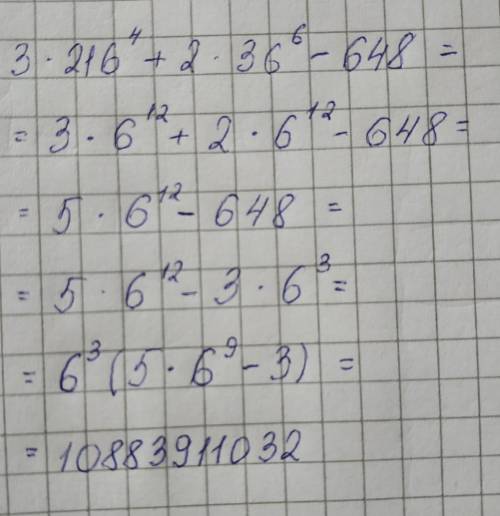 3 · 216⁴ + 2 · 36⁶ - 648 =
= 3 · 6¹² + 2 · 6¹² - 648 =
= 5 · 6¹² - 648 =
= 5 · 6¹² - 3 · 6³ =
= 6³ (5 · 6⁹ - 3) =
= 10883911032